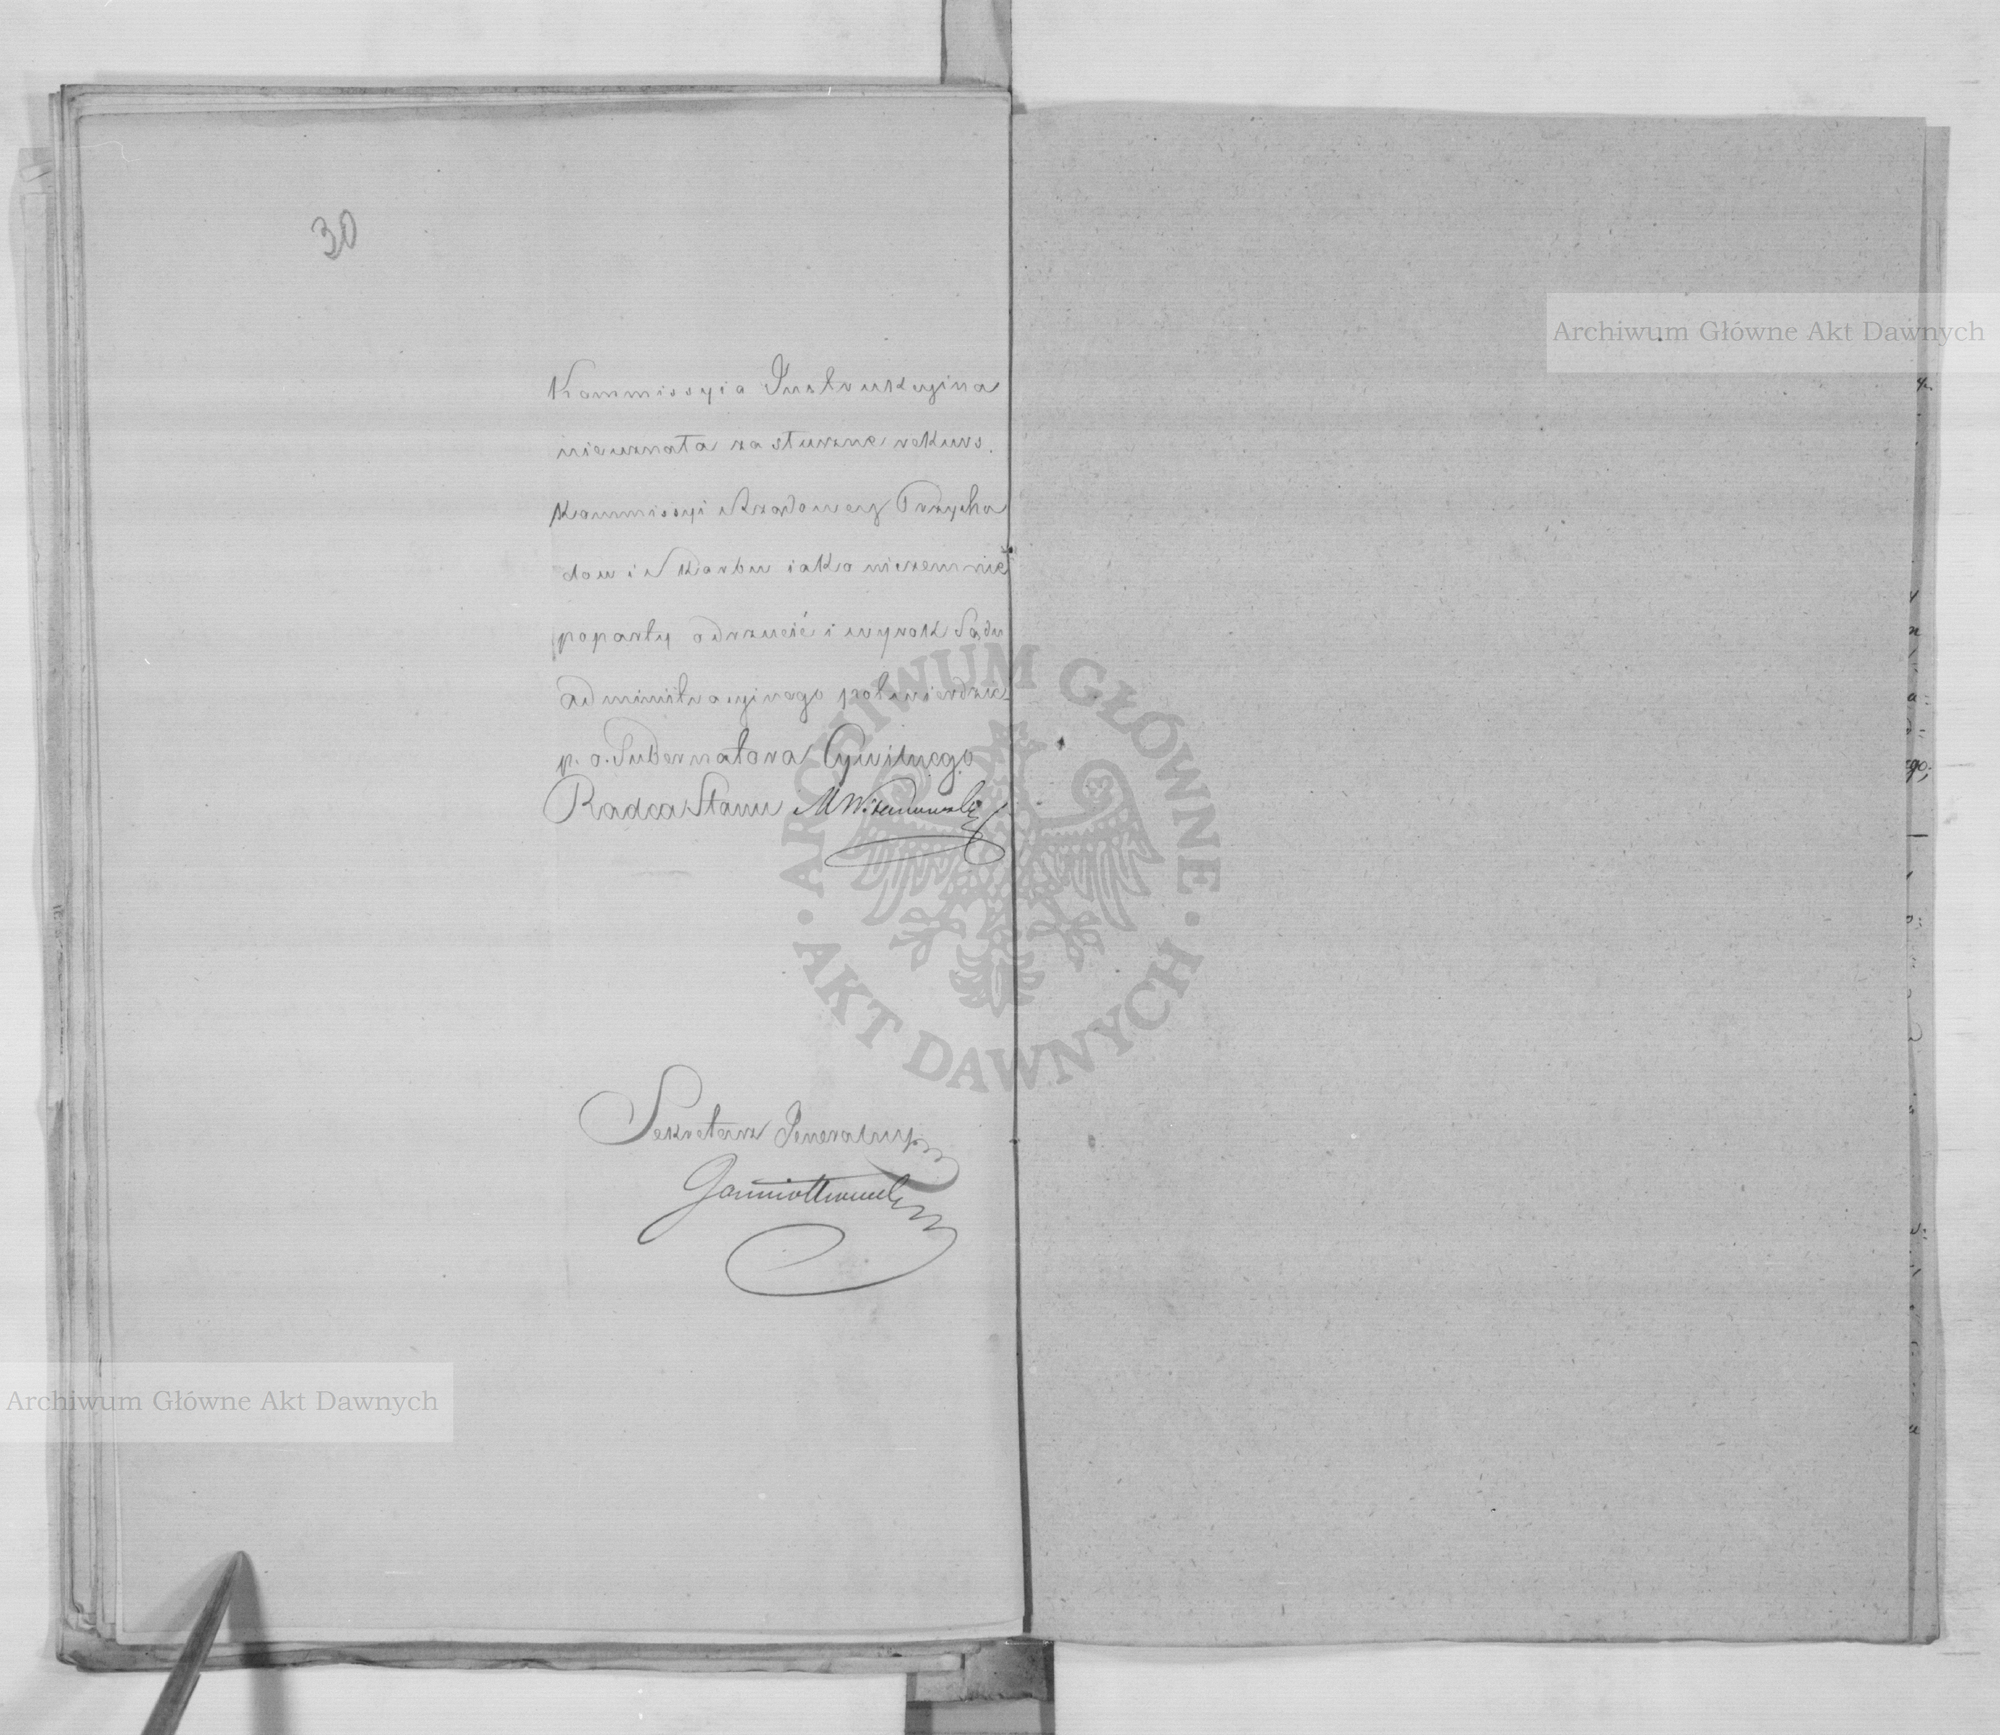 30
Kommissyia Instrukcyina
nieuznała za słuszne rekurs
Kommissyi Rządowey Przycho
dow i Skarbu iako niczem nie
poparty odrzucić i wyrok Sądu
Administracyinego potwierdzić
p. o. Gubernatora Cywilnego
Radca Stanu M
Sekretarz Generalny
Archiwum Główne Akt Dawnych
Archiwum Główne Akt Dawnych
ARCHIWUM GŁÓWNE · AKT DAWNYCH ·